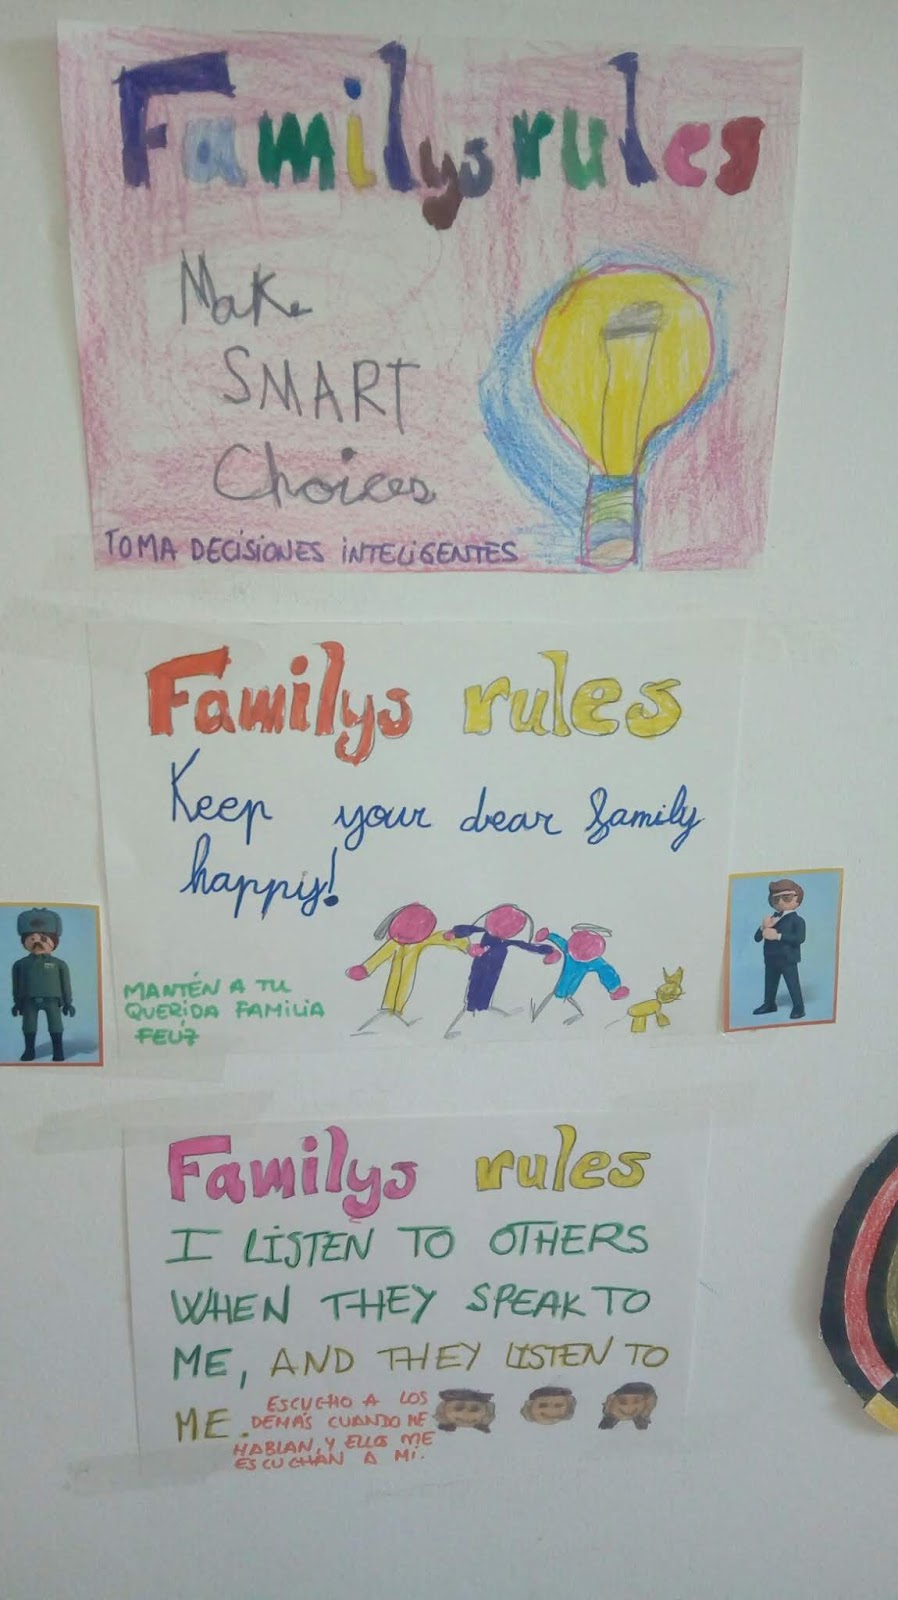 Familys rules
Make
SMART
Choices
TOMA DECISIONES INTELIGENTES
Familys rules
Keep your dear family
happy!
MANTÉN A TU
QUERIDA FAMILIA
FELIZ
Familys rules
I LISTEN TO OTHERS
WHEN THEY SPEAK TO
ME, AND THEY LISTEN TO
ME.
ESCUCHO A LOS
DEMÁS CUANDO ME
HABLAN, Y ELLOS ME
ESCUCHAN A MÍ.